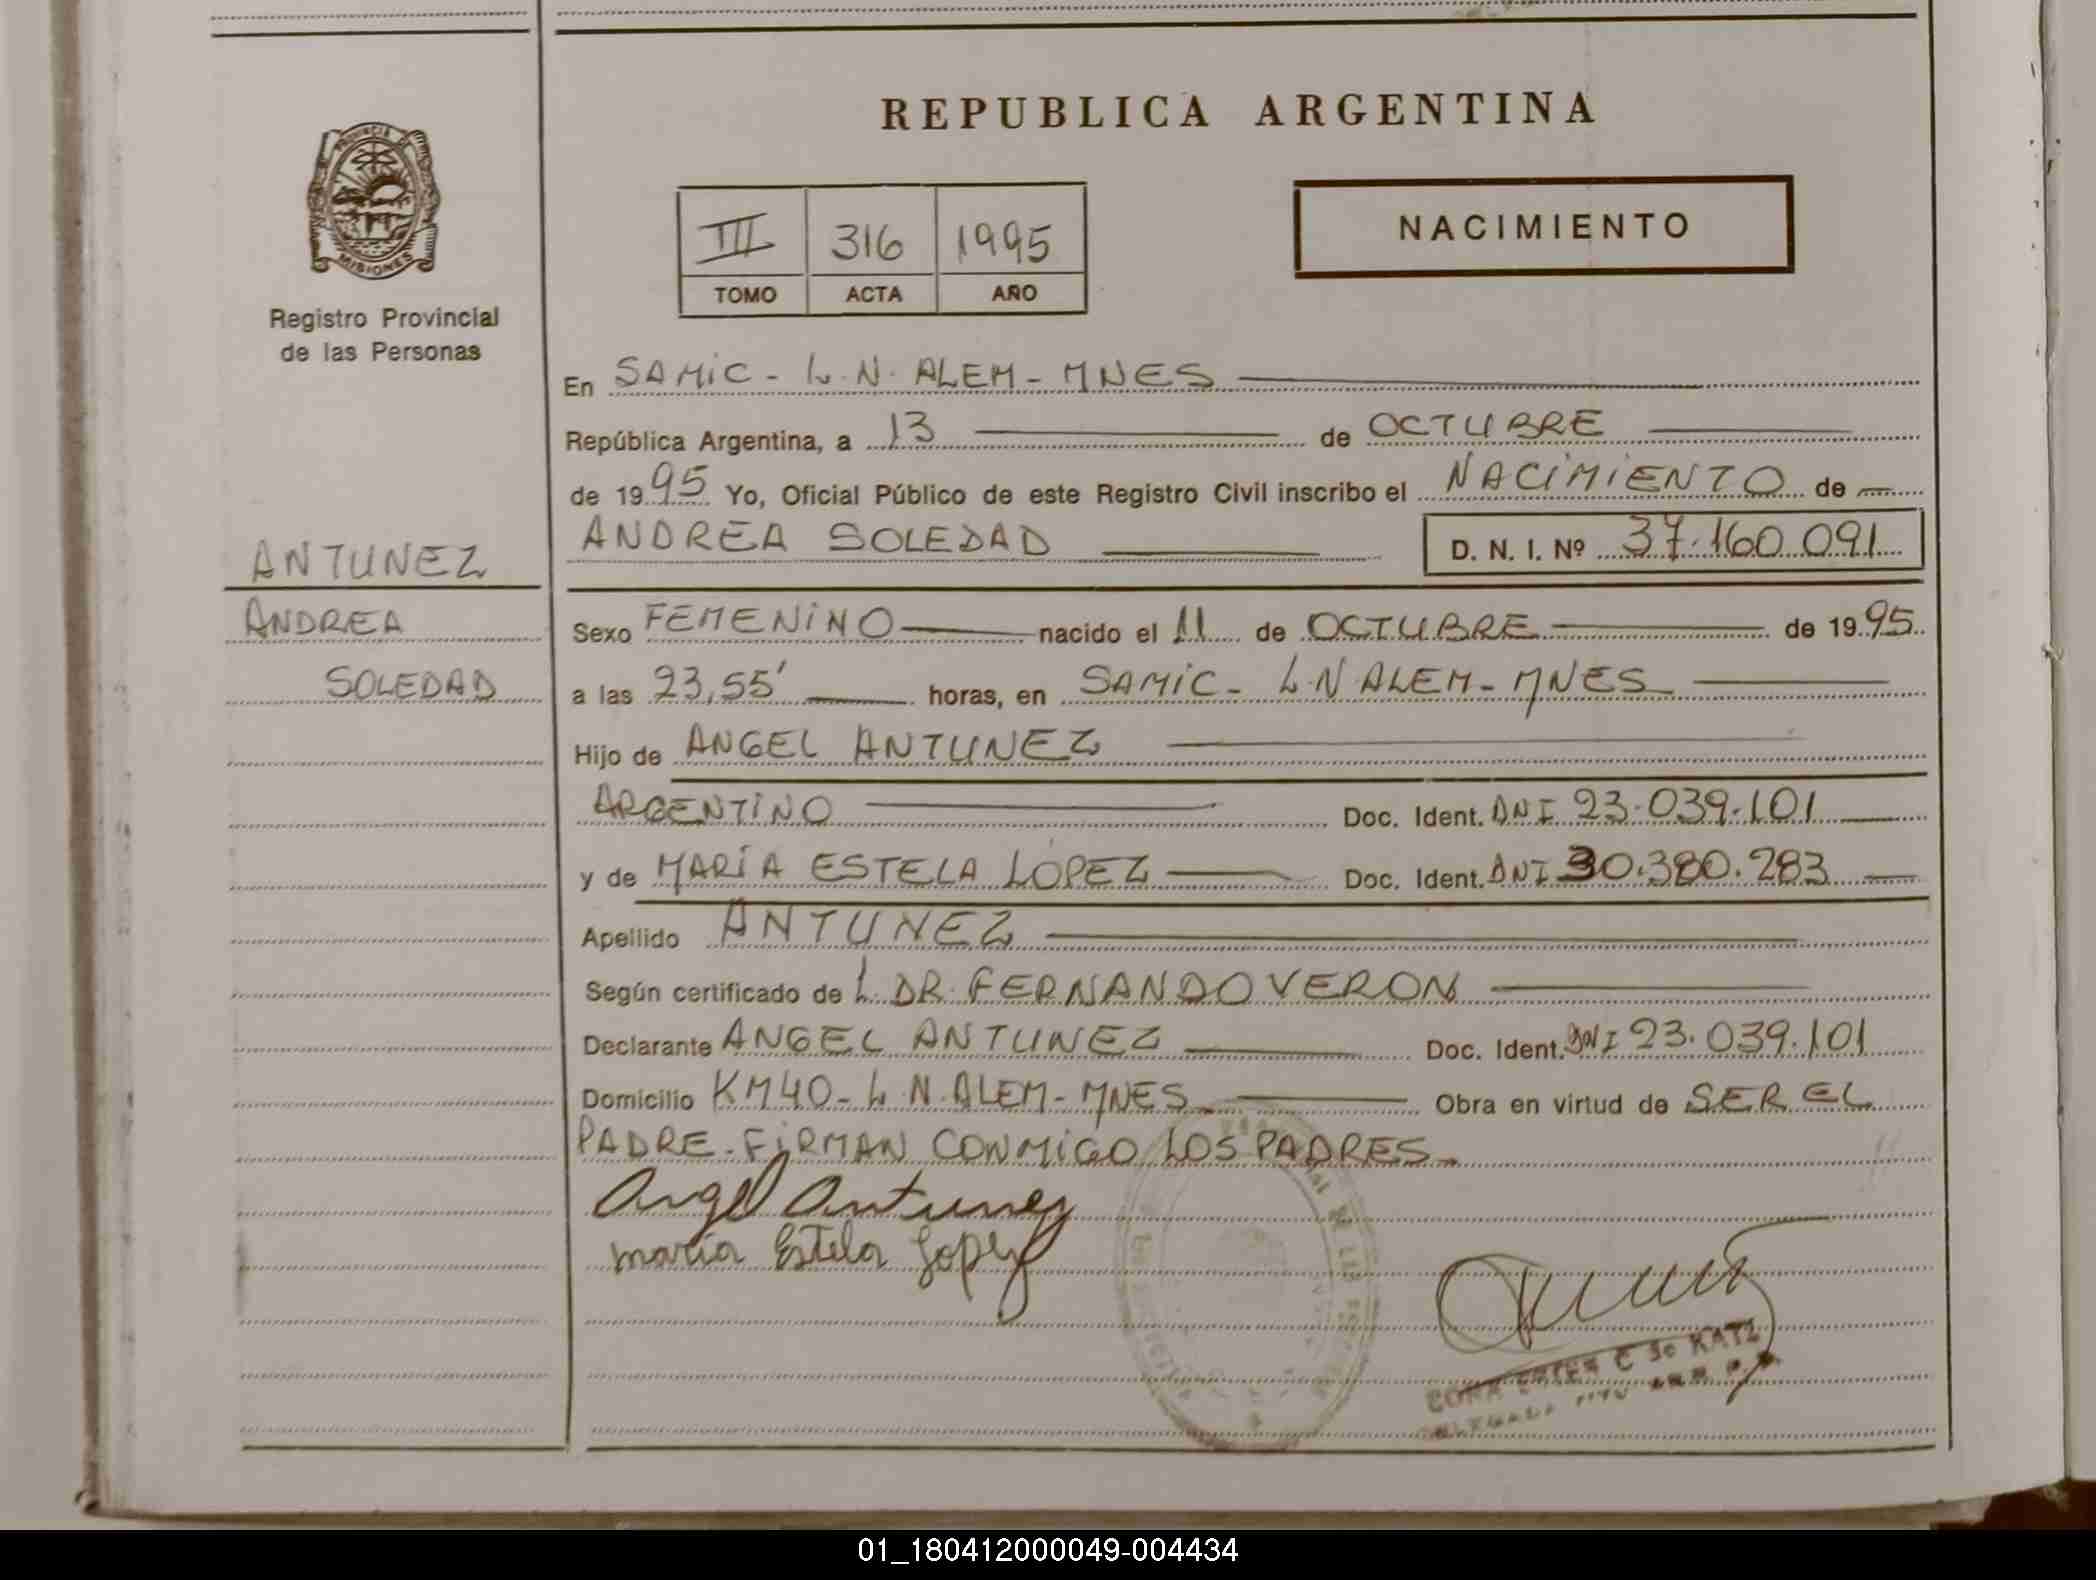 PROVINCIA DE
MISIONES
Registro Provincial
de las Personas
ANTUNEZ
ANDREA
SOLEDAD
REPUBLICA ARGENTINA
III 316 1995
TOMO ACTA AÑO
NACIMIENTO
En SAMIC - L.N. ALEM - MNES
República Argentina, a 13 de OCTUBRE
de 1995 Yo, Oficial Público de este Registro Civil inscribo el NACIMIENTO de
ANDREA SOLEDAD D. N. I. Nº 37.160.091
Sexo FEMENINO nacido el 11 de OCTUBRE de 1995
a las 23,55' horas, en SAMIC - L.N ALEM - MNES
Hijo de ANGEL ANTUNEZ
ARGENTINO Doc. Ident. DNI 23.039.101
y de MARÍA ESTELA LÓPEZ Doc. Ident. DNI 30.380.283
Apellido ANTUNEZ
Según certificado de L DR. FERNANDO VERON
Declarante ANGEL ANTUNEZ Doc. Ident. DNI 23.039.101
Domicilio KM40 - L.N. ALEM - MNES Obra en virtud de SER EL
PADRE. FIRMAN CONMIGO LOS PADRES.
Angel Antunez
maría Estela Lopez
KATZ
01_180412000049-004434